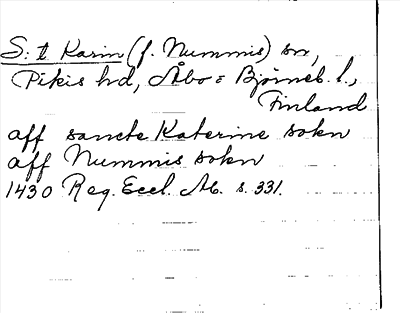 S:t Karin (f. Nummis) sn,
Pikis hd, Åbo o Björneb. l.,
Finland
aff sancte Katerine sokn
aff Nummis sokn
1430 Reg. Eccl. Ab. s. 331.